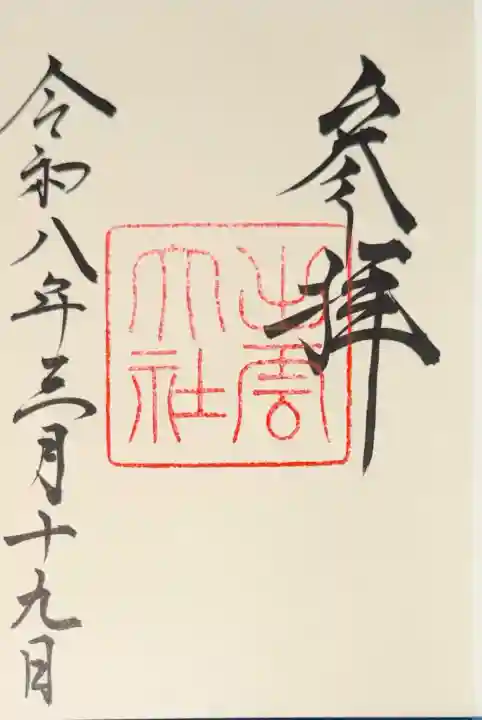 參拝
出雲
大社
令和八年三月十九日